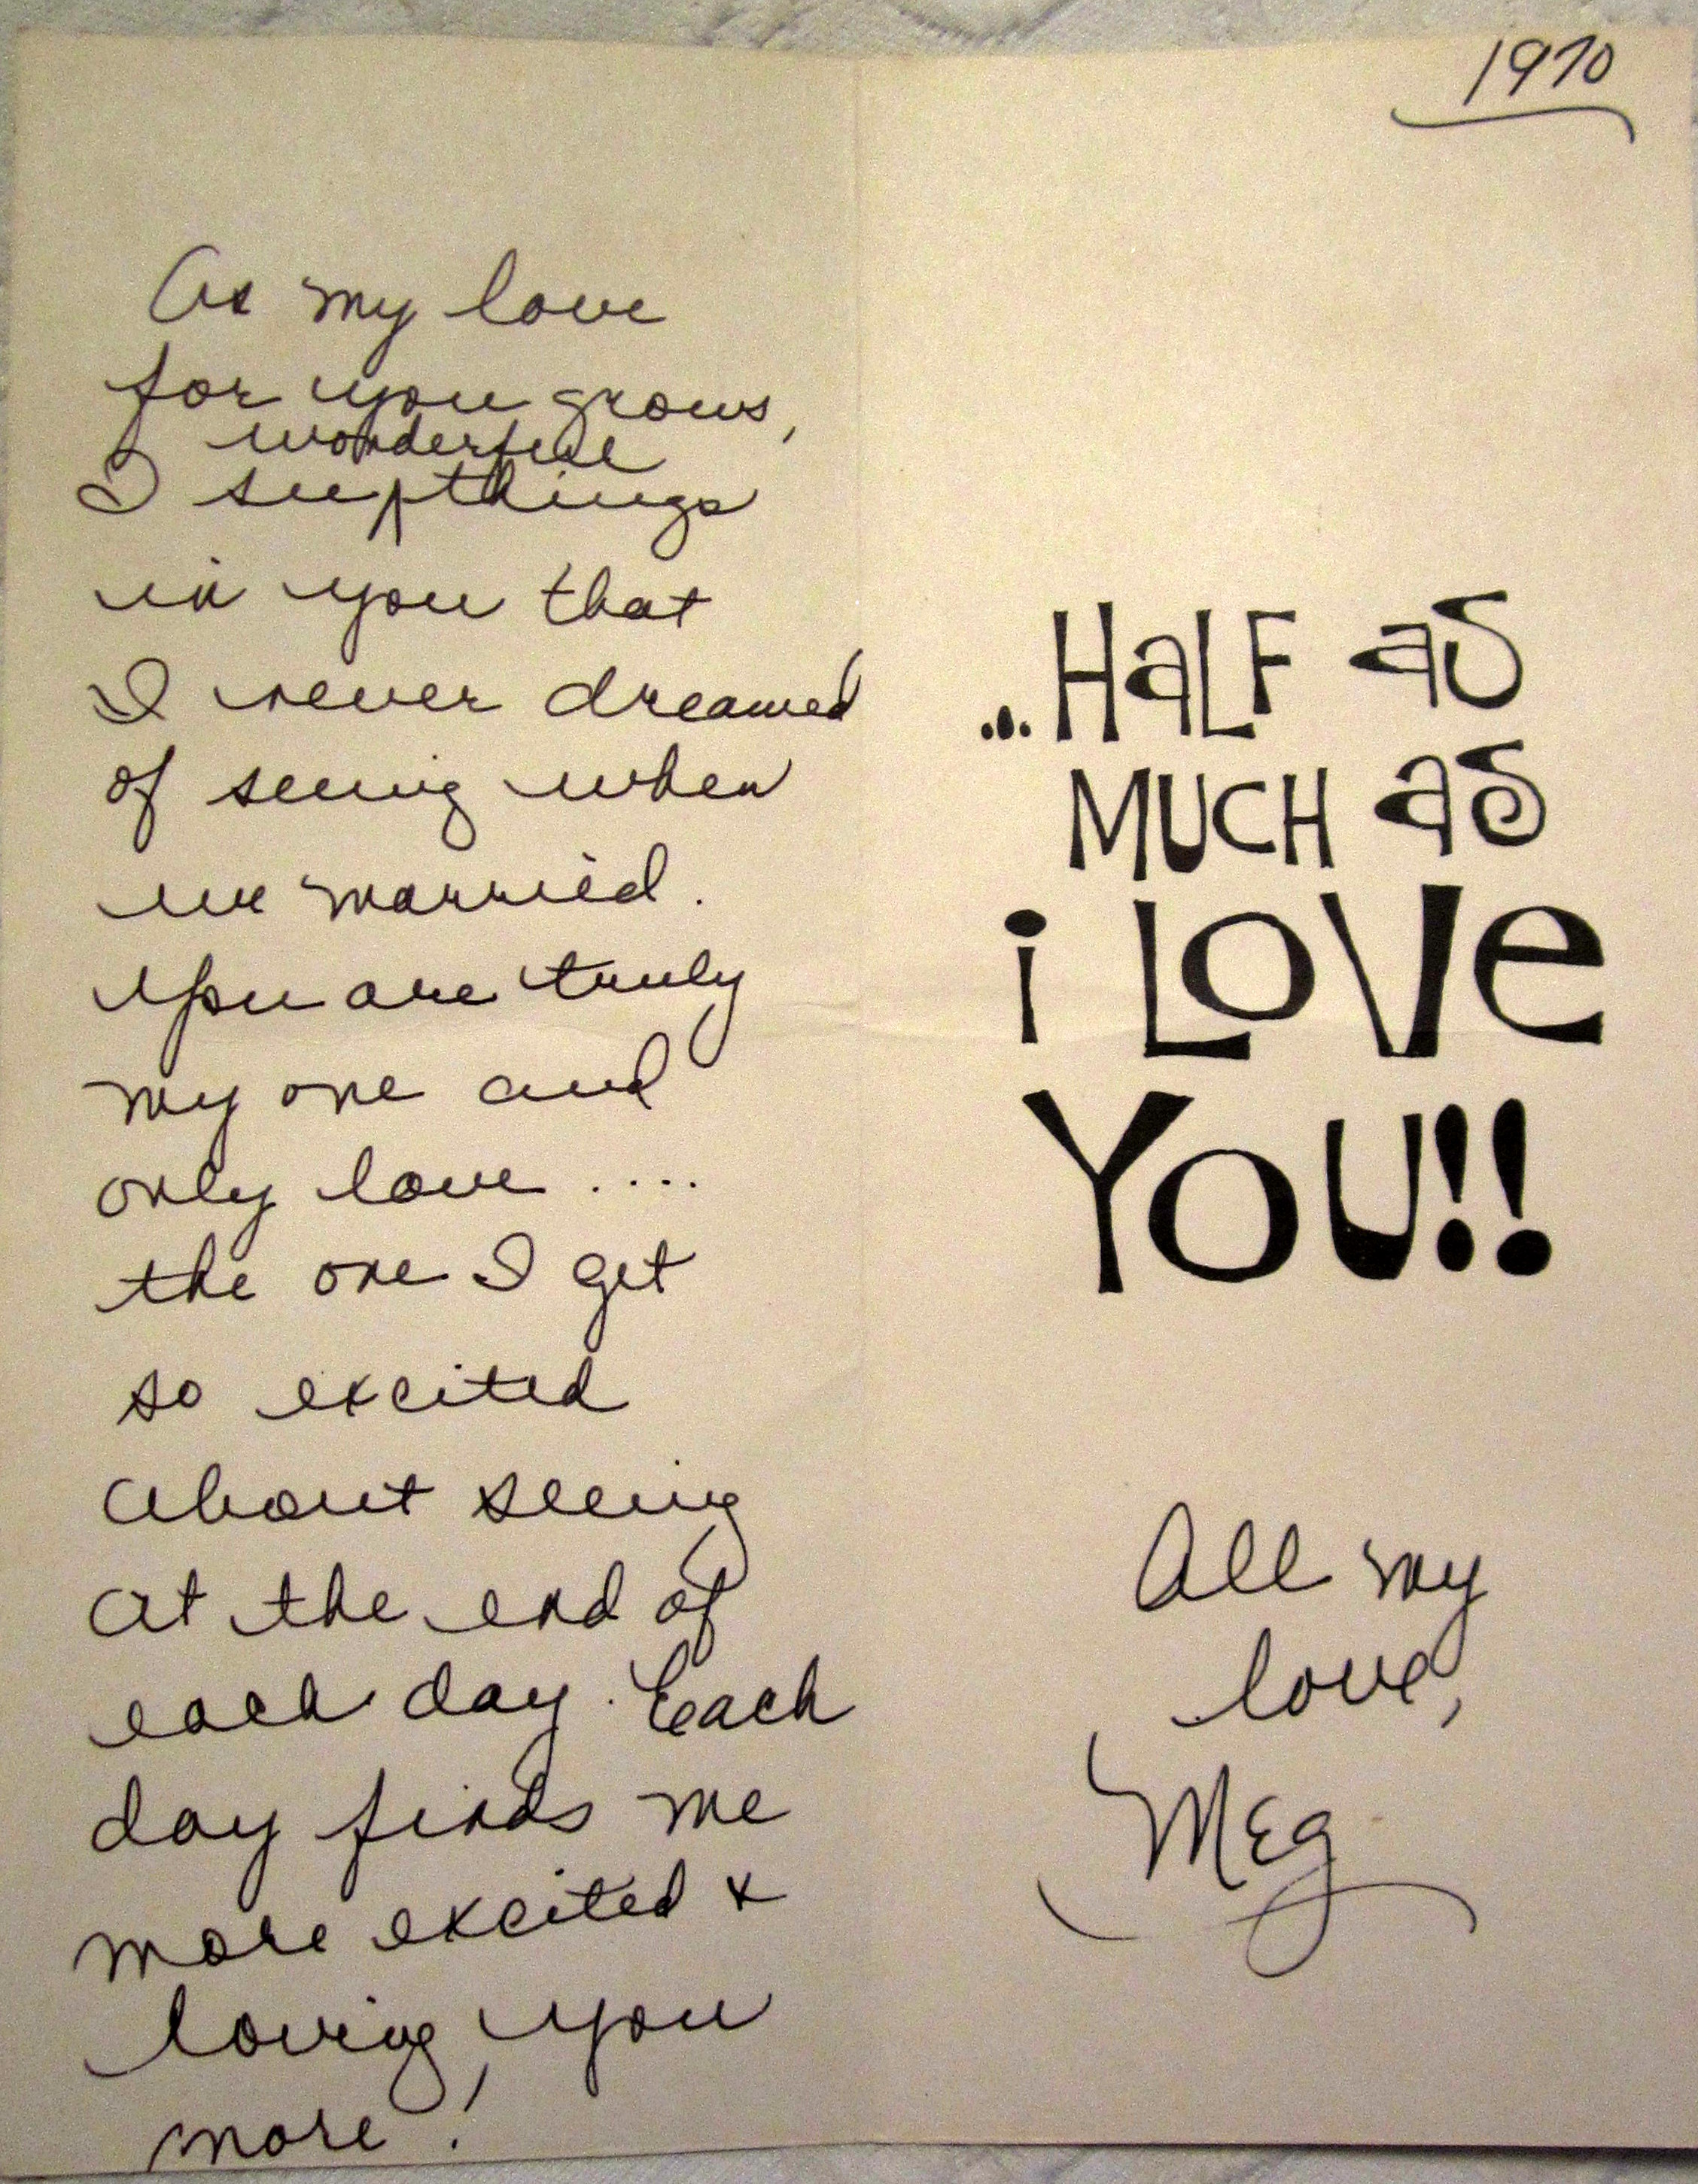 As my love
for you grows,
wonderful
I see things
in you that
I never dreamed
of seeing when
we married.
You are truly
my one and
only love ....
the one I get
so excited
about seeing
at the end of
each day. Each
day finds me
more excited &
loving you
more!
1970
...HaLF aS
MUCH aS
i LOVe
YOU!!
All my
love,
Meg